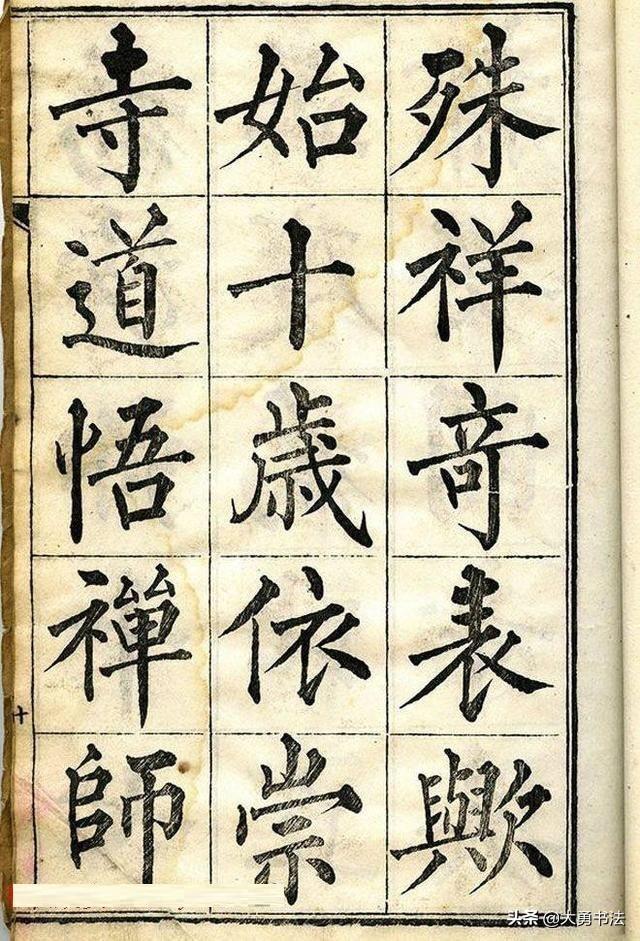 殊祥竒表歟
始十歳依崇
寺道悟禪師
十
头条 @大勇书法